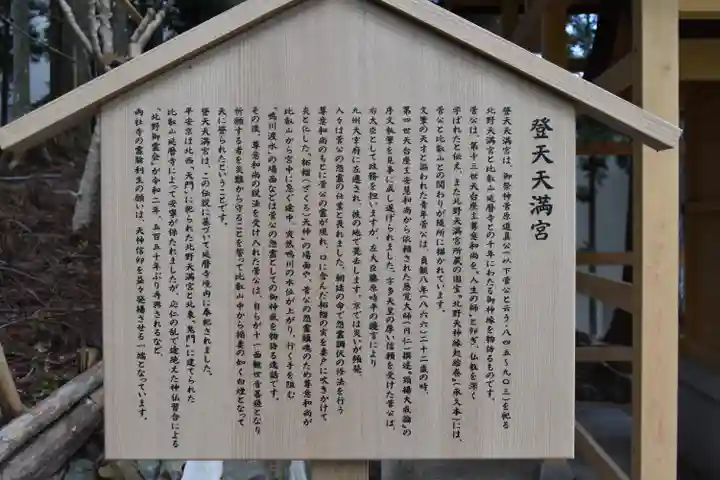 登天天満宮
登天天満宮は、御祭神菅原道真公(以下菅公と云う・八四五~九〇三)を祀る
北野天満宮と比叡山延暦寺との千年にわたる御神縁を物語るものです。
菅公は、第十三世天台座主尊意和尚を、人生の師と仰ぎ、仏教を深く
学ばれたと伝え、また北野天満宮所蔵の国宝「北野天神縁起絵巻」(承久本)には、
菅公と比叡山との関わりが随所に描かれています。
文筆の天才と謳われた青年菅公は、貞観八年(八六六)二十二歳の時、
第四世天台座主安慧和尚から依頼された慈覚大師(円仁)撰述「顕揚大戒論」の
序文執筆を見事に成し遂げられました。宇多天皇の厚い信頼を受けた菅公は、
右大臣として政務を担いますが、左大臣藤原時平の讒言により
九州大宰府に左遷され、彼の地で薨去します。京では災いが頻発、
人々は菅公の怨霊の仕業と畏れました。朝廷の命で怨霊調伏の修法を行う
尊意和尚のもとに菅公の霊が現れ、口に含んだ柘榴の実を妻戸に吹きかけて
炎と化した、柘榴(ざくろ)天神」の場面や、菅公の怨霊鎮魂のため尊意和尚が
比叡山から宮中に急ぐ途中、突然鴨川の水位が上がり、行く手を阻む
「鴨川渡水」の場面などは菅公の怨霊としての御神威を物語る逸話です。
その後、尊意和尚の説法を受け入れた菅公は、自らが十一面観世音菩薩となり
祈願する者を災難から守ることを誓って比叡山寺から稲妻の如く白煙となって
天に登られたということです。
登天天満宮は、この伝説に基づいて延暦寺境内に奉祀されました。
平安京は北西「天門」に祀られた北野天満宮と北東「鬼門」に建てられた
比叡山延暦寺によって安寧が保たれましたが、応仁の乱で途絶えた神仏習合による
「北野御霊会」が令和二年、五百五十年ぶり再興されるなど、
両社寺の霊験利生の願いは、天神信仰を益々発揚させる一端となっています。